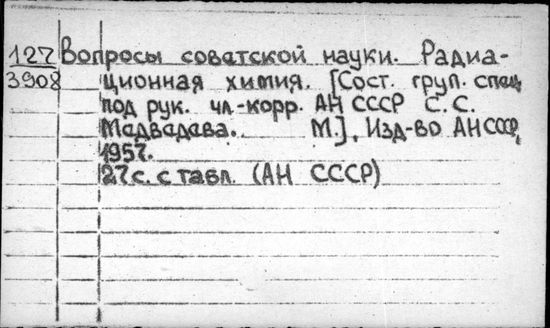 127 Вопросы советской науки. Радиа-
3908 ционная химия. [Сост. груп. спец.
под рук. чл-корр. АН СССР С. С.
Медведева. М.], Изд-во АН СССР,
1957.
27 с. с табл. (АН СССР)